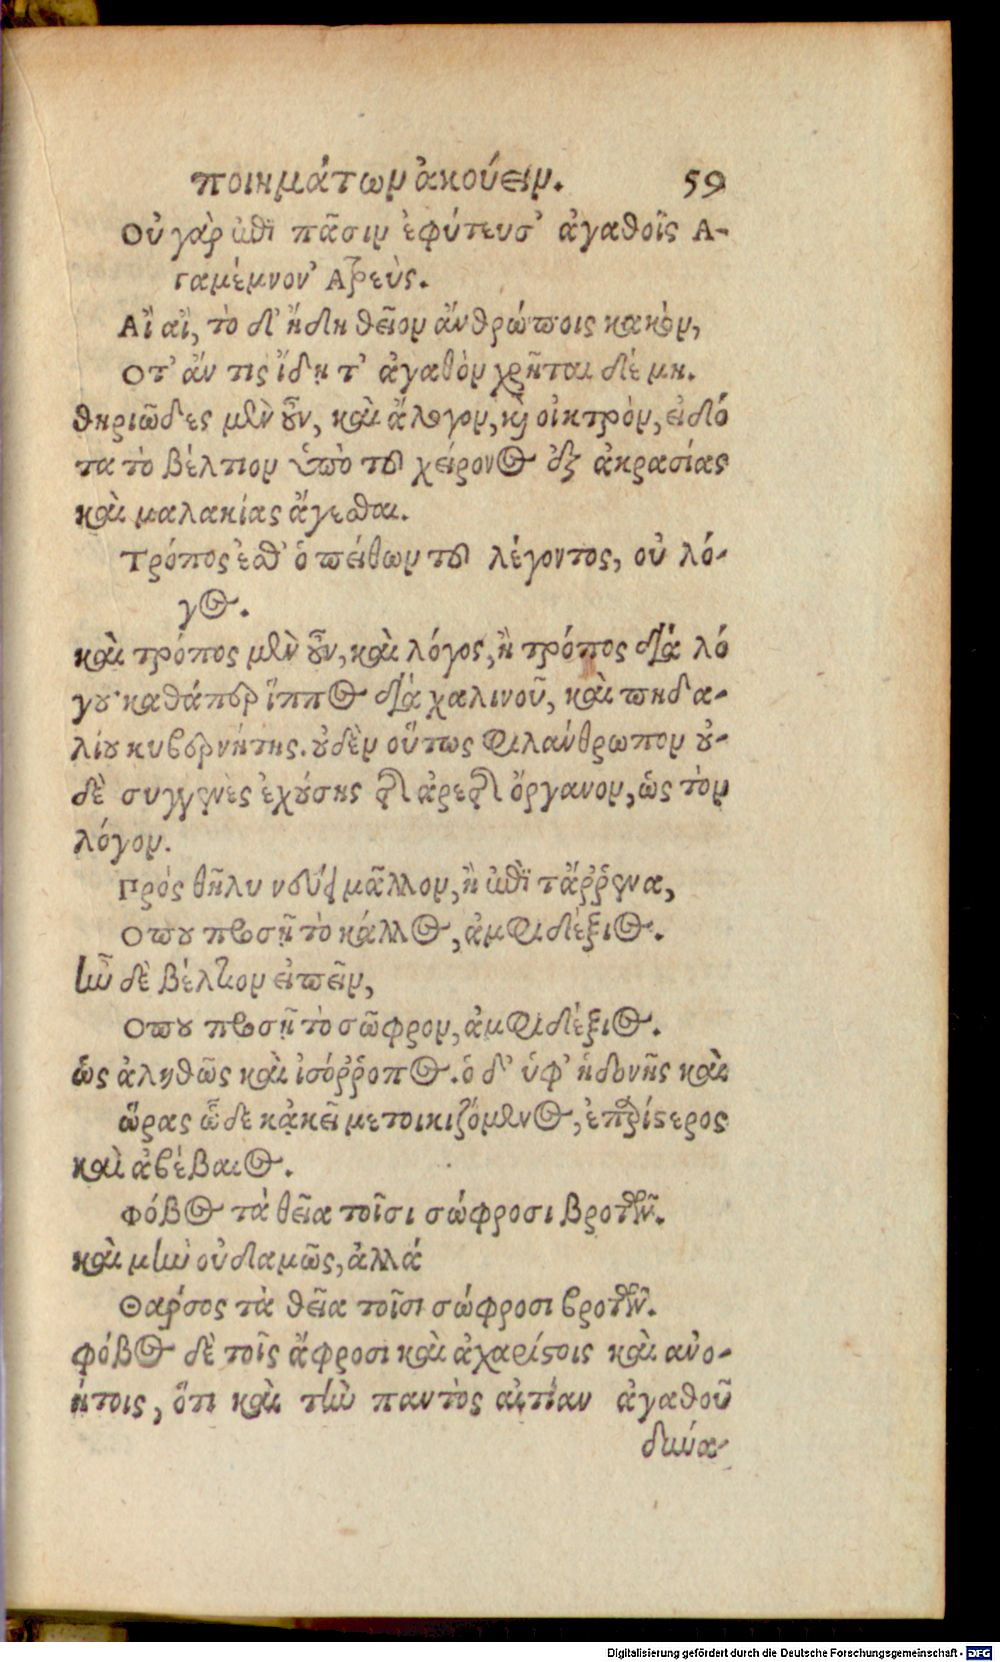 ποιημάτων ἀκούειν. 59
Οὐ γὰρ ἐπὶ πᾶσιν ἐφύτευσ' ἀγαθοῖς Α-
γαμέμνον' Ατρεύς.
Αἲ αἲ, τὸ δ' ἤδη θεῖον ἀνθρώποις κακὸν,
Οτ' ἄν τις ἴδῃ τ' ἀγαθὸν χρῆται δέ μη.
θηριῶδες μὲν οὖν, καὶ ἄλογον, καὶ οἰκτρὸν, εἰδό
τα τὸ βέλτιον ὑπὸ τοῦ χείρονος ἐξ ἀκρασίας
καὶ μαλακίας ἄγεσθαι.
Τρόπος ἐσθ' ὁ πείθων τοῦ λέγοντος, οὐ λό-
γος.
καὶ τρόπος μὲν οὖν, καὶ λόγος, ἢ τρόπος διὰ λό
γου· καθάπερ ἵππος διὰ χαλινοῦ, καὶ πηδα-
λίου κυβερνήτης. οὐδὲν οὕτως φιλάνθρωπον οὐ-
δὲ συγγενὲς ἐχούσης τῆς ἀρετῆς ὄργανον, ὡς τὸν
λόγον.
Πρὸς θῆλυ νεύει μᾶλλον, ἢ ἐπὶ τἄῤῥενα,
Οπου προσῇ τὸ κάλλος, ἀμφιδέξιος.
ἦν δὲ βέλτιον εἰπεῖν,
Οπου προσῇ τὸ σῶφρον, ἀμφιδέξιος.
ὡς ἀληθῶς καὶ ἰσόῤῥοπος. ὁ δ' ὑφ' ἡδονῆς καὶ
ὥρας ὧδε κἀκεῖ μετοικιζόμενος, ἐπαρίστερος
καὶ ἀβέβαιος.
Φόβος τὰ θεῖα τοῖσι σώφροσι βροτῶν.
καὶ μὴν οὐδαμῶς, ἀλλά
Θαρσος τὰ θεῖα τοῖσι σώφροσι βροτῶν.
φόβος δὲ τοῖς ἄφροσι καὶ ἀχαρίστοις καὶ ἀνο-
ήτοις, ὅτι καὶ τὴν παντὸς αἰτίαν ἀγαθοῦ
δύνα-
Digitalisierung gefördert durch die Deutsche Forschungsgemeinschaft - DFG